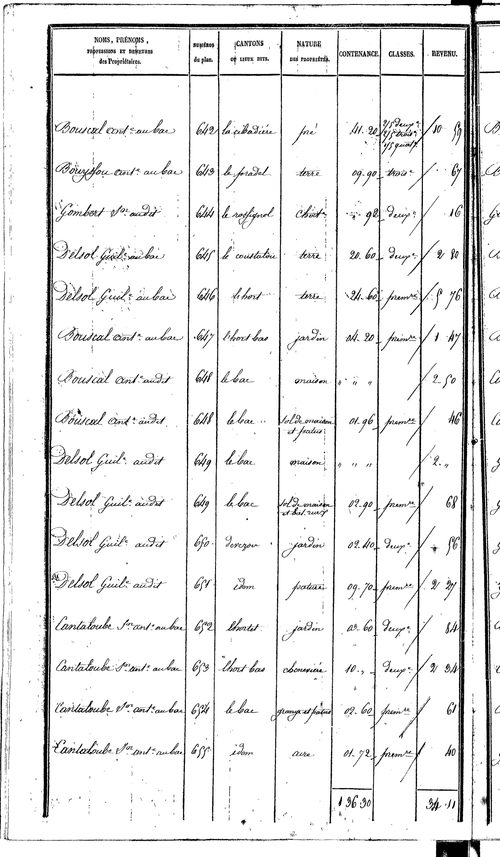 NOMS, PRÉNOMS, PROFESSIONS ET DEMEURES des Propriétaires. NUMÉROS du plan. CANTONS OU LIEUX DITS. NATURE DES PROPRIÉTÉS. CONTENANCE. CLASSES. REVENU.
Bouscal ant.e au bac 642 la cibadière pré 41.20 2/5 deux.e 2/5 trois.e 1/5 quat.e 10 59
ant.e au bac 643 le pradel terre 09.90 trois.e 67
Gombert audit 644 le rossignol 92 deux.e 16
Delsol Guil.e au bac 645 le terre 20.60 deux.e 2 80
Delsol Guil.e au bac 646 l'hort terre 24.60 prem.re 5 76
Bouscal ant.e au bac 647 l'hort bas jardin 04.20 prem.re 1 47
Bouscal ant.e audit 648 le bac maison " " " 2.50
Bouscal ant.e audit 648 le bac sol de maison et patus 01.96 prem.re 46
Delsol Guil.e audit 649 le bac maison " " " 2 "
Delsol Guil.e audit 649 le bac sol de maison 02.90 prem.re 68
Delsol Guil.e audit 650 jardin 02.40 deux.e 56
Delsol Guil.e audit 651 idem pature 09.70 prem.re 2 27
Cantaloube ant.e au bac 652 l'hortet jardin 03.60 deux.e 84
Cantaloube ant.e au bac 653 l'hort bas 10 " deux.e 2 34
Cantaloube ant.e au bac 654 le bac grange et patus 02.60 prem.re 61
Cantaloube ant.e au bac 655 idem aire 01.72 prem.re 40
1 36 30 34.11